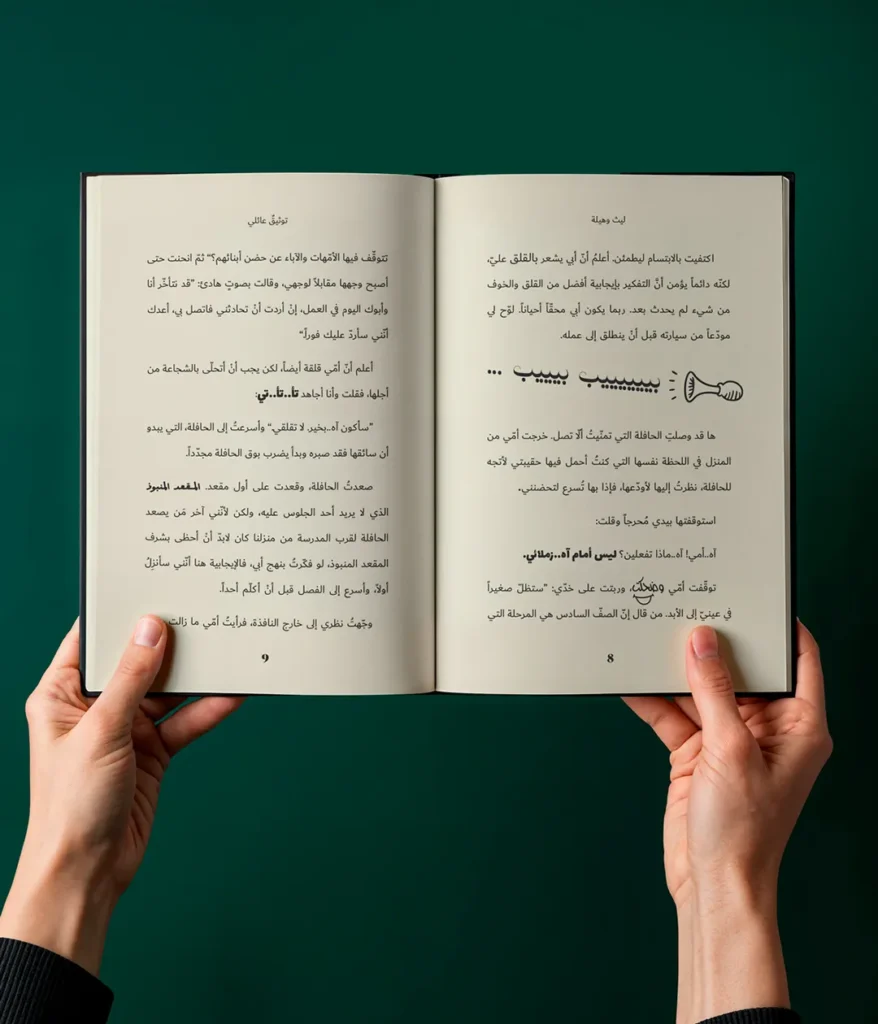 ليث وهيلة
اكتفيت بالابتسام ليطمئن. أعلمُ أنّ أبي يشعر بالقلق عليّ،
لكنّه دائماً يؤمن أنَّ التفكير بإيجابية أفضل من القلق والخوف
من شيء لم يحدث بعد. ربما يكون أبي محقّاً أحياناً. لوّح لي
مودّعاً من سيارته قبل أنْ ينطلق إلى عمله.
بيييييييب بييييب ...
ها قد وصلتِ الحافلة التي تمنّيتُ ألّا تصل. خرجت أمّي من
المنزل في اللحظة نفسها التي كنتُ أحمل فيها حقيبتي لأتجه
للحافلة، نظرتُ إليها لأودّعها، فإذا بها تُسرع لتحضنني.
استوقفتها بيدي مُحرجاً وقلت:
آه..أمي! آه..ماذا تفعلين؟ ليس أمام آه..زملائي.
توقّفت أمّي وضحكت، وربتت على خدّي: "ستظلّ صغيراً
في عينيّ إلى الأبد. من قال إنّ الصفّ السادس هي المرحلة التي
8
توثيقٌ عائلي
تتوقّف فيها الأمّهات والآباء عن حضن أبنائهم؟" ثمّ انحنت حتى
أصبح وجهها مقابلاً لوجهي، وقالت بصوتٍ هادئ: "قد نتأخّر أنا
وأبوك اليوم في العمل، إنْ أردت أنْ تحادثني فاتصل بي، أعدك
أنّني سأردّ عليك فوراً."
أعلم أنّ أمّي قلقة أيضاً، لكن يجب أنْ أتحلّى بالشجاعة من
أجلها، فقلت وأنا أجاهد تأ..تأ..تي:
"سأكون آه..بخير. لا تقلقي." وأسرعتُ إلى الحافلة، التي يبدو
أن سائقها فقد صبره وبدأ يضرب بوق الحافلة مجدّداً.
صعدتُ الحافلة، وقعدت على أول مقعد. المقعد المنبوذ
الذي لا يريد أحد الجلوس عليه، ولكن لأنّني آخر مَن يصعد
الحافلة لقرب المدرسة من منزلنا كان لابدّ أنْ أحظى بشرف
المقعد المنبوذ، لو فكّرتُ بنهج أبي، فالإيجابية هنا أنّني سأنزلُ
أولاً، وأسرع إلى الفصل قبل أنْ أكلّم أحداً.
وجّهتُ نظري إلى خارج النافذة، فرأيتُ أمّي ما زالت
9